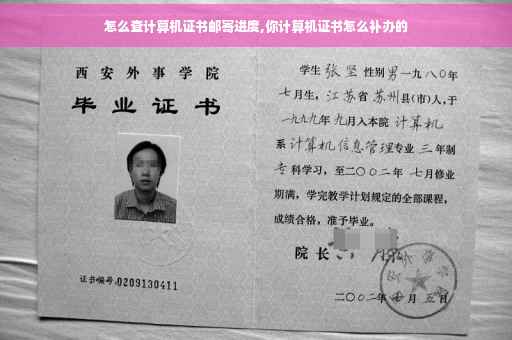 怎么查计算机证书邮寄进度,你计算机证书怎么补办的
西安外事学院
毕业证书
证书编号:0209130411
学生 张坚 性别男 一九八〇年
七月生, 江苏省 苏州县(市)人,于
一九九九年 九月入本院 计算机
系 计算机信息管理专业 三 年制
专 科学习, 至二〇〇二年 七月修业
期满, 学完教学计划规定的全部课程,
成绩合格, 准予毕业。
院长
二〇〇二年 月 五日